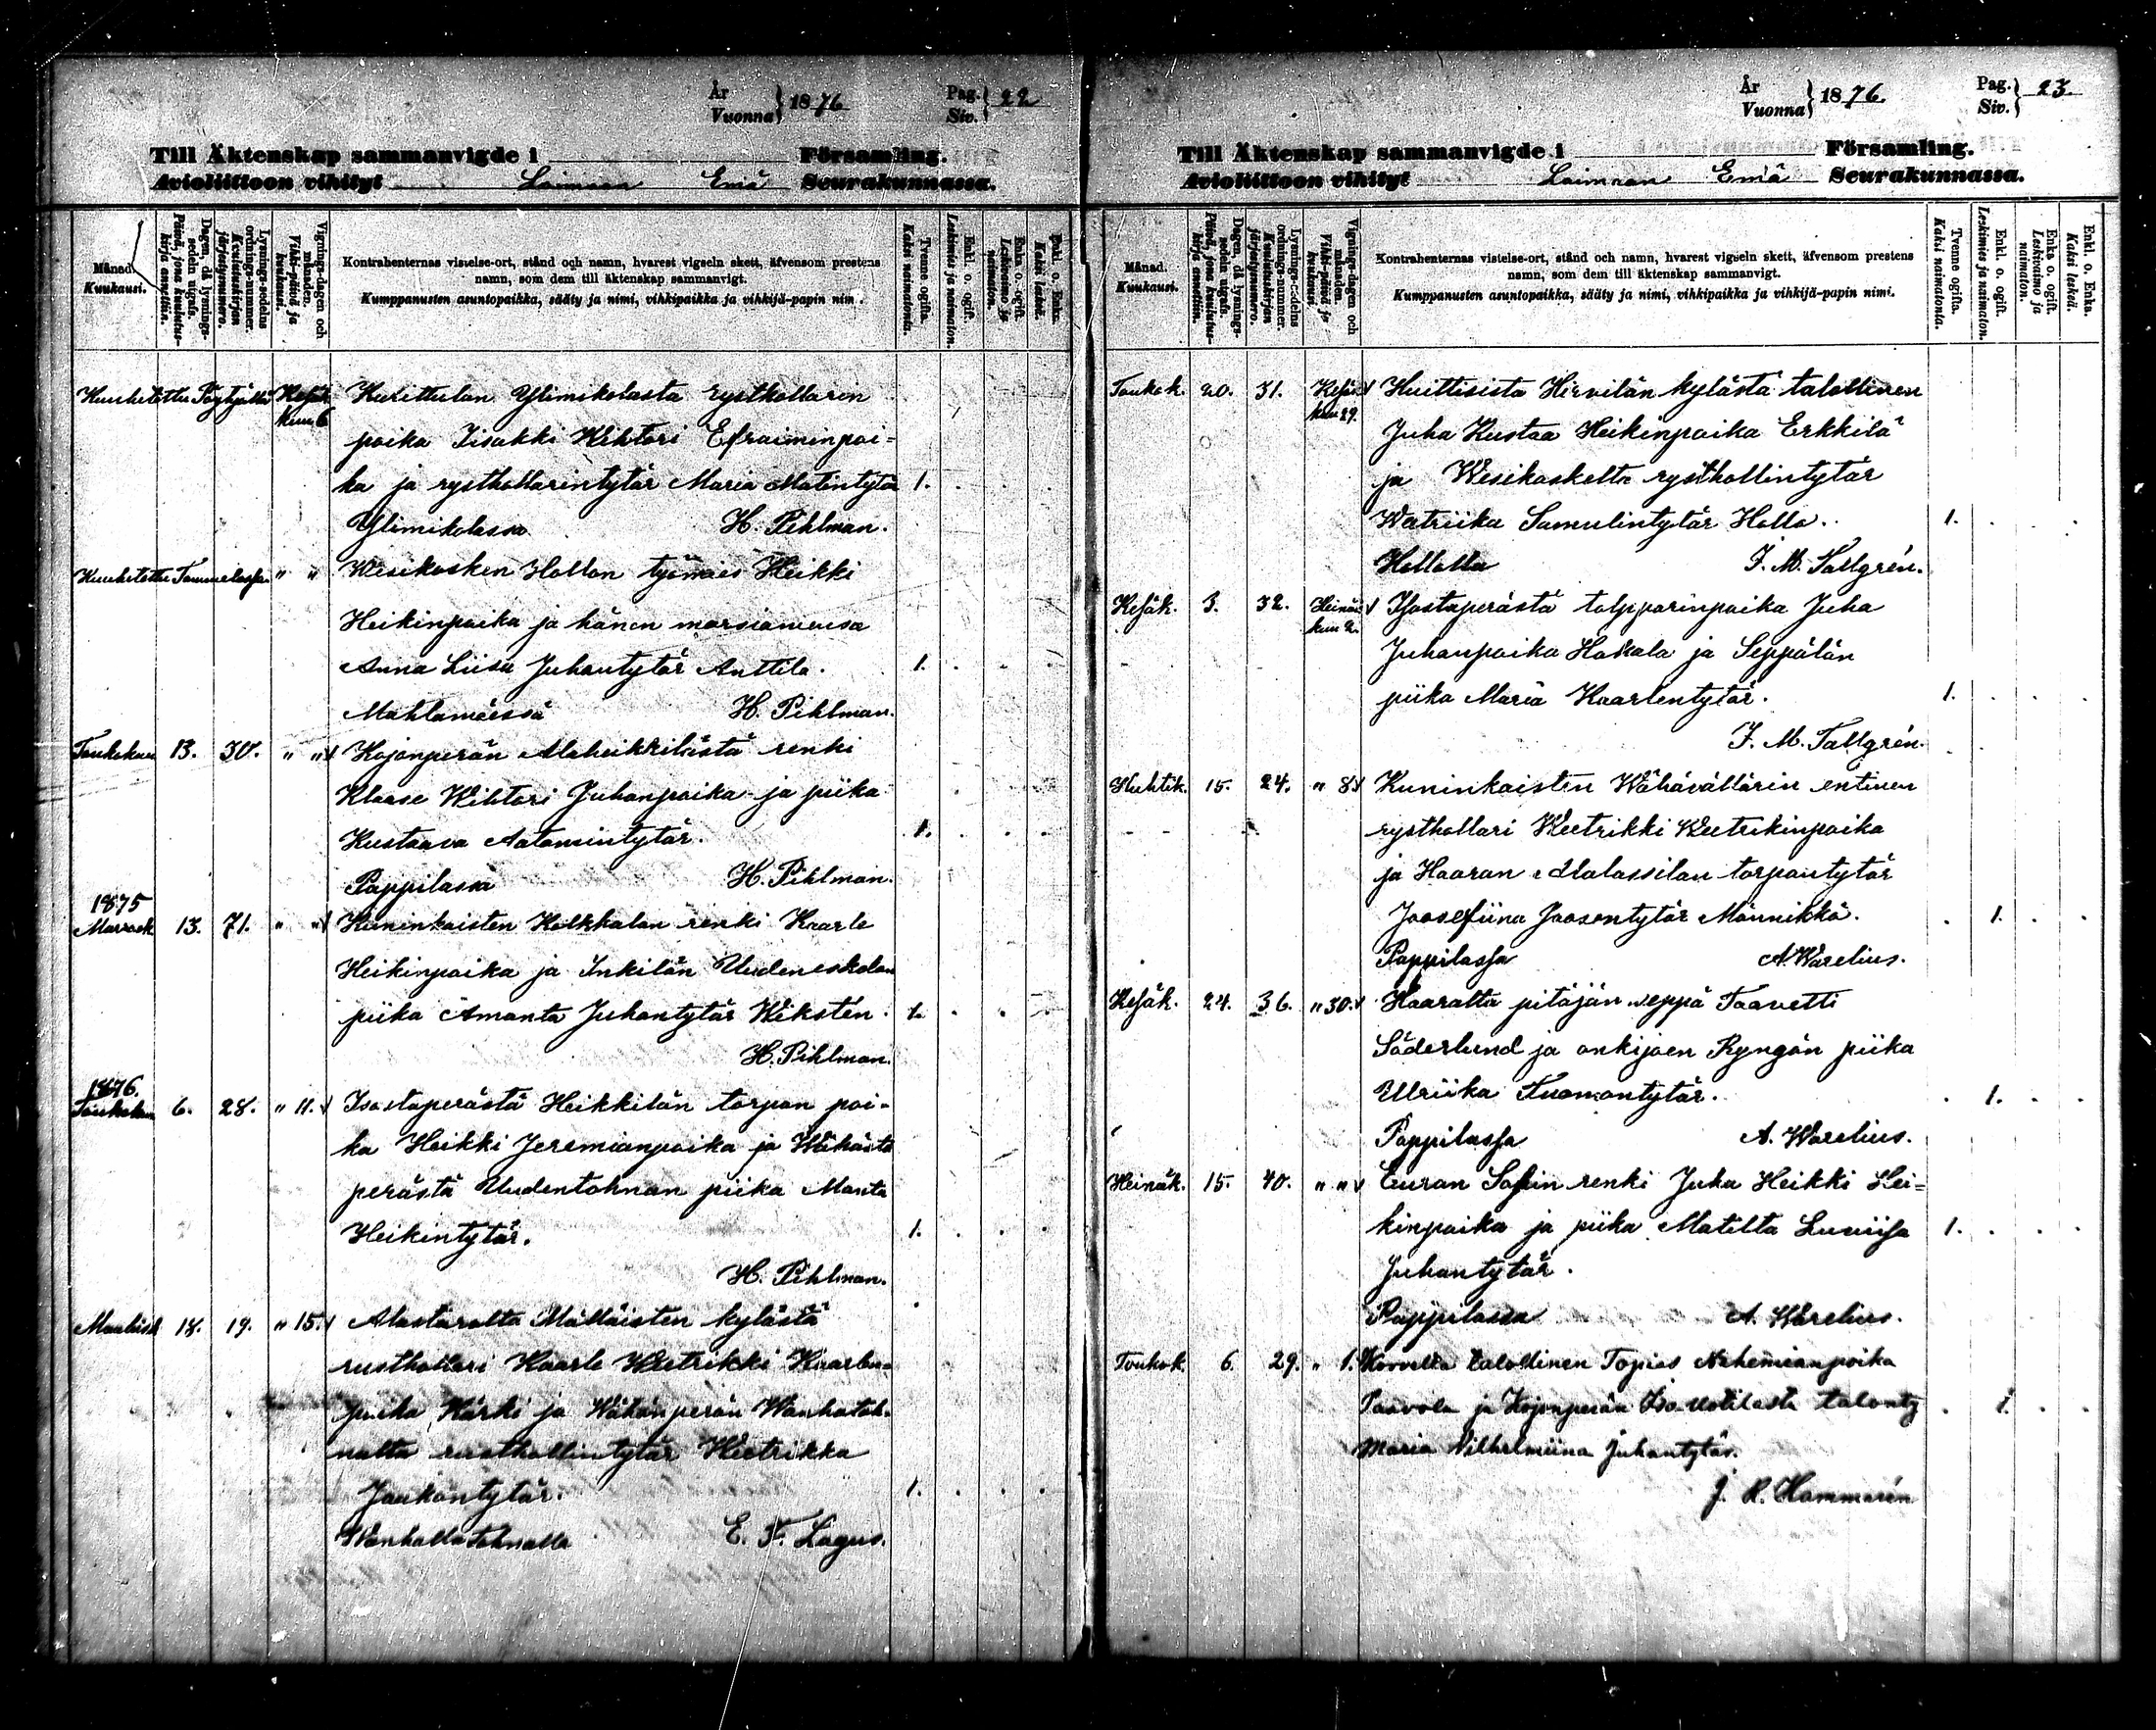 År
Vuonna } 1876 Pag.
Siv. } 22
Till Äktenskap sammanvigde i Församling.
Avioliittoon vihityt Loimaan Emä Seurakunnassa.
Månad.
Kuukausi.
Dagen, då lysnings-sedeln utgafs.
Päivä, jona kuulutus-kirja annettiin.
Lysnings-sedelns ordnings-nummer.
Kuulutuskirjan järjestysnumero.
Vignings-dagen och månaden.
Vihki-päivä ja kuukausi.
Kontrahenternas vistelse-ort, stånd och namn, hvarest vigseln skett, äfvensom prestens
namn, som dem till äktenskap sammanvigt.
Kumppanusten asuntopaikka, sääty ja nimi, vihkipaikka ja vihkijä-papin nimi.
Tvenne ogifta.
Kaksi naimatonta.
Enkl. o. ogift.
Leskimies ja naimaton.
Enka o. ogift.
Leskivaimo ja naimaton.
Enkl. o. Enka.
Kaksi leskeä.
Kuulutettu Pöytyällä Kesäk Kurittulan Ylimikolasta rysthollarin
kuu 6
poika Iisakki Wihtori Efraiminpoi=
ka ja rysthollarintytär Maria Matintytär 1.
Ylimikolassa H. Pihlman.
Kuulutettu Tammelassa " " Wesikosken Hollon työmies Heikki
Heikinpoika ja hänen morsiamensa
Anna Liisa Juhantytär Anttila. 1.
Mahlamäessä H. Pihlman.
Toukokuu 13. 30. " " Kojonperän Alaheikkilästä renki
Klaase Wihtori Juhanpoika ja piika
Kustaava Aatamintytär. 1.
Pappilassa H. Pihlman.
1875
Marrask 13. 71. " " Kuninkaisten Kolkkalan renki Kaarle
Heikinpoika ja Inkilän Uudeneskolan
piika Amanta Juhantytär Wikstén. 1.
H. Pihlman.
1876.
Toukokuu 6. 28. " 11. Isostaperästä Heikkilän torpan poi-
ka Heikki Jeremianpoika ja
perästä Uudentohnan piika Manta
Heikintytär. 1.
H. Pihlman.
Maalisk 18. 19. " 15. Alastarolta Mälläisten kylästä
rusthollari Kaarle Wretrikki Kaarlen=
poika ja Wanhatoh-
nalta rusthollintytär Heetrikka
Jaakontytär. 1.
Wanhalla Tohnalla E. F. Lagus.
År
Vuonna } 1876. Pag.
Siv. } 23.
Till Äktenskap sammanvigde i Församling.
Avioliittoon vihityt Loimaan Emä Seurakunnassa.
Månad.
Kuukausi.
Dagen, då lysnings-sedeln utgafs.
Päivä, jona kuulutus-kirja annettiin.
Lysnings-sedelns ordnings-nummer.
Kuulutuskirjan järjestysnumero.
Vignings-dagen och månaden.
Vihki-päivä ja kuukausi.
Kontrahenternas vistelse-ort, stånd och namn, hvarest vigseln skett, äfvensom prestens
namn, som dem till äktenskap sammanvigt.
Kumppanusten asuntopaikka, sääty ja nimi, vihkipaikka ja vihkijä-papin nimi.
Tvenne ogifta.
Kaksi naimatonta.
Enkl. o. ogift.
Leskimies ja naimaton.
Enka o. ogift.
Leskivaimo ja naimaton.
Enkl. o. Enka.
Kaksi leskeä.
Toukok. 20. 31. Kesä Huittisista Hirvilän kylästä talollinen
kuu 29.
Juha Kustaa Heikinpoika Erkkilä
ja Wesikoskelta rysthollintytär
Watriika Samulintytär Hollo. 1.
Hollolla J. M. Tallgrén.
Kesäk. 3. 32. Heinä Isostaperästä talpparinpoika Juha
kuu 2.
Juhanpoika Hakala ja Seppälän
piika Maria Kaarlentytär. 1.
J. M. Tallgrén.
Huhtik. 15. 24. " 8. Kuninkaisten Wähävällärin entinen
rysthollari Wretrikki Wretrikinpoika
ja Haaran Malassilan torpantytär
Joosefiina Joosentytär Männikkö. 1.
Pappilassa A. Warelius.
Kesäk. 24. 36. " 30. Haaralta pitäjän seppä Taavetti
Söderlund ja onkijoen Kyngän piika
Ulriika Tuomontytär. 1.
Pappilassa A. Warelius.
Heinäk. 15. 40. " " Euran renki Juha Heikki Hei=
kinpoika ja piika Matilta Luviisa 1.
Juhantytär.
Pappilassa A. Warelius.
Toukok. 6. 29. " 1. talollinen Topias Nehemianpoika
Paavola ja Kojonperän talonty 1.
Maria Vilhelmiina Juhantytär.
J. R. Hammarén